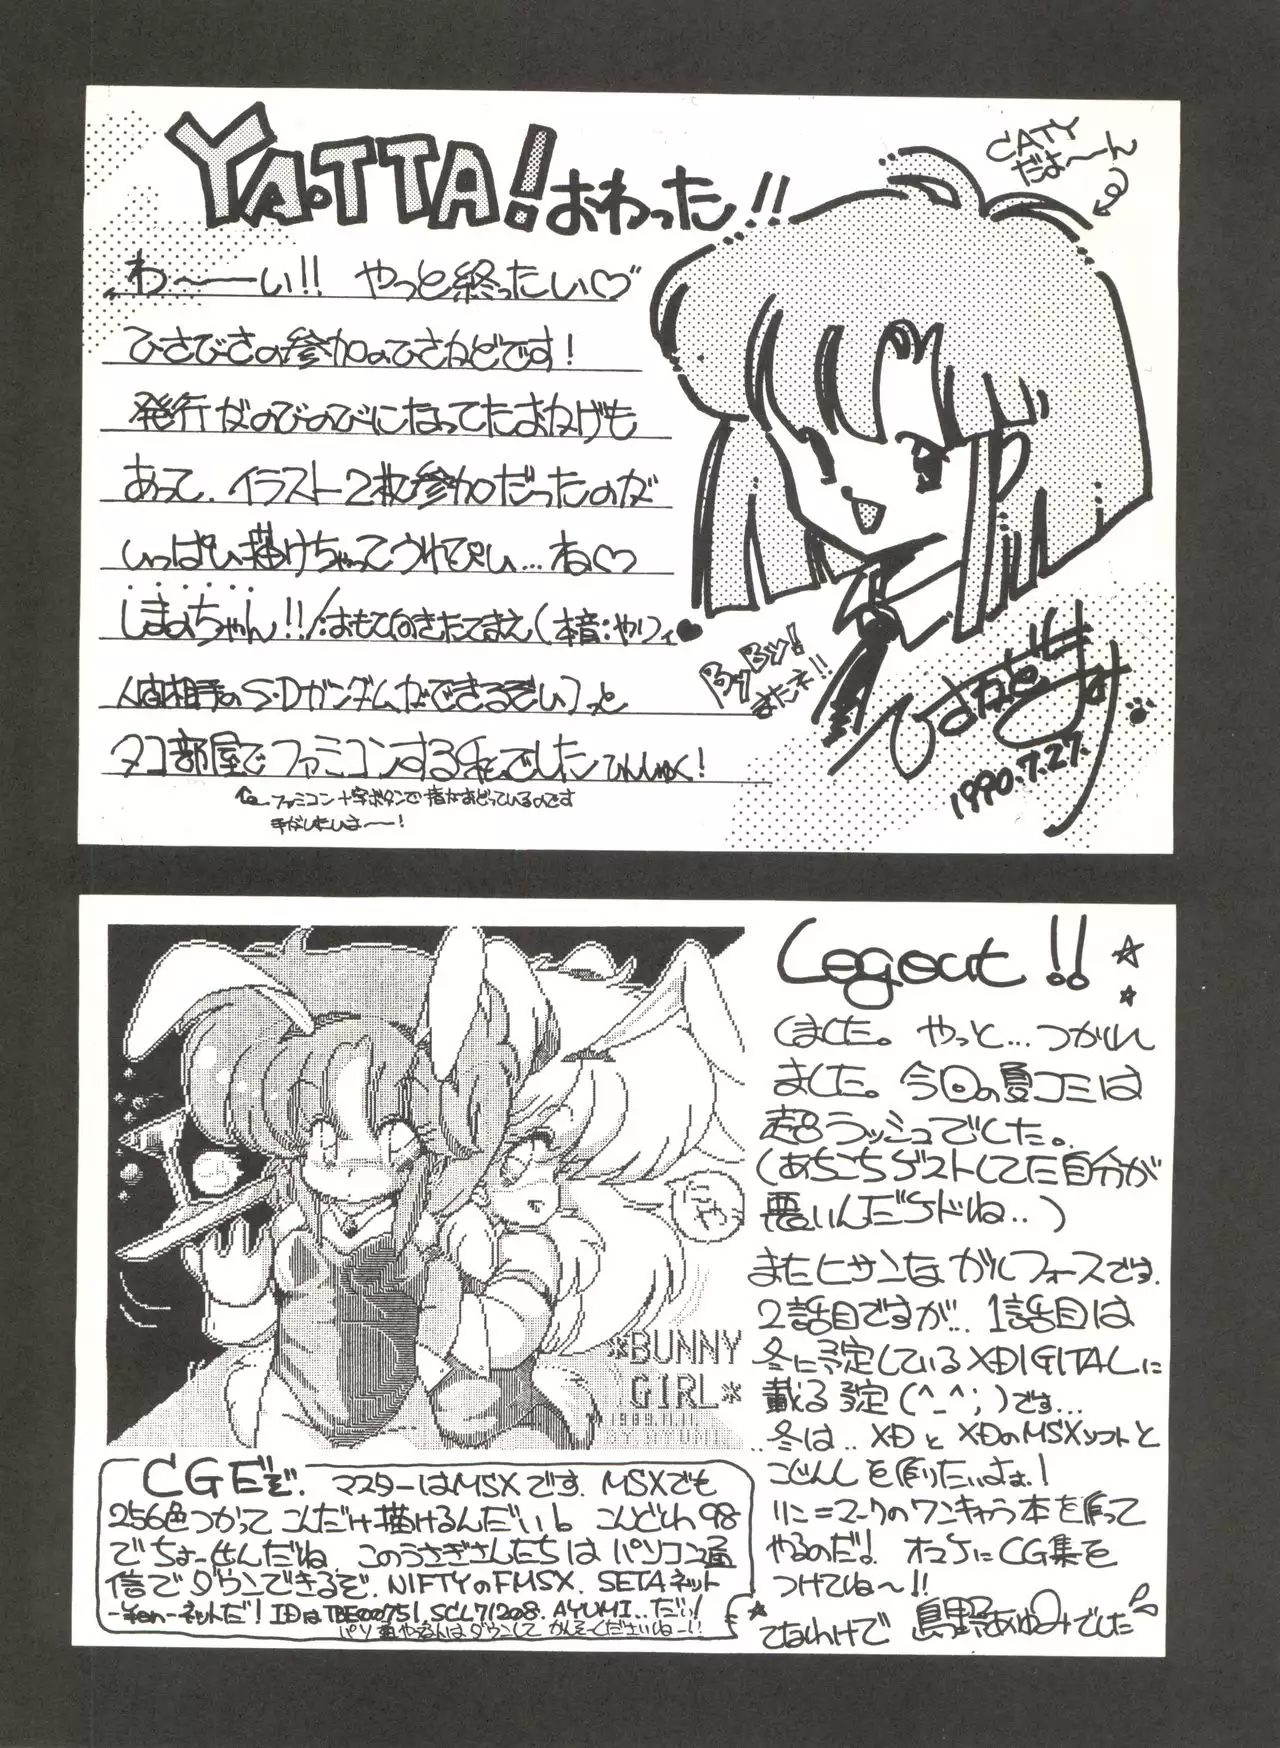 YA.TTA!おわった!!
CATY
だよ〜〜ん
わ〜ーい!! やっと終ったい♡
ひさびさの参加のひさかどです!
発行がのびのびになってたおかげも
あって、イラスト2枚参加だったのが
いっぱい描けちゃってうれぴい…ね♡
しまのちゃん!!
人間相手のS・Dガンダムができるぞい
タコ部屋でファミコンする私でした ひんしゅく!
ファミコン十字ボタンで指がおどっているのです
手がいたいよ〜ー!
ByBy!
またネ!!
1990.7.27.
Logout!!
しました。やっと…つかれ
ました。今回の夏コミは
超ラッシュでした。
(あちこちゲストしてた自分が
悪いんだけドね..)
またヒサンなガルフォースです。
2話目ですが… 1話目は
冬に予定しているXDIGITALに
載る予定(^_^;)です…
..冬は..XDとXDのMSXソフトと
こじんしを作りたいよぉ!
リン=マークのワンキャラ本を作って
やるのだ! オマケにCG集を
つけてね〜!!
てなわけで 島野あゆみでした
いやっ
*BUNNY
GIRL*
1989.11.11.
BY.AYUMI.
CGだぞ. マスターはMSXです. MSXでも
256色つかって こんだけ描けるんだい! こんどわ98
でちょーせんだね. このうさぎさんたちは パソコン通
信でダウンできるぞ. NIFTYのFMSX. SETAネット
-ネットだ! IDはTBE00751. SCL71208. AYUMI..だい!
パソ通やる人はダウンして かんそーくださいねー!!